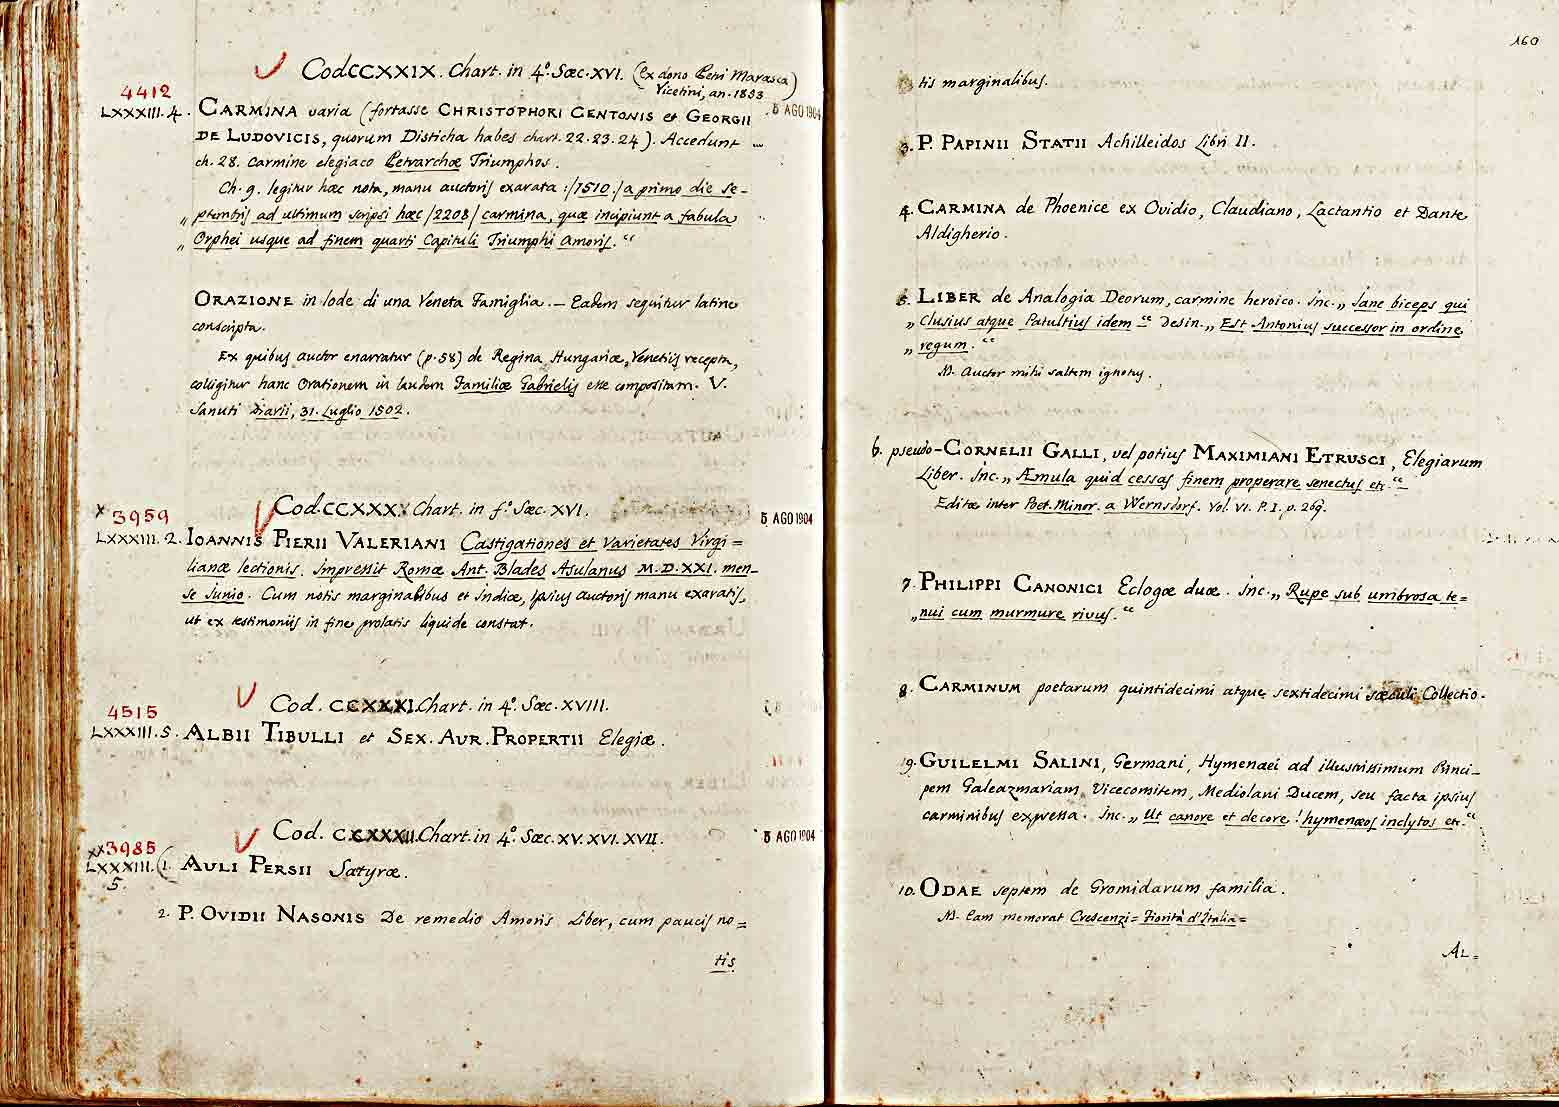 Cod. CCXXIX. Chart. in 4º. Sæc. XVI. (ex dono Petri Marasca)
Vicetini, an. 1853
4412
5 AGO 1904
LXXXIII. 4. CARMINA varia (fortasse CHRISTOPHORI CENTONIS et GEORGII
DE LUDOVICIS, quorum Disticha habes chart. 22. 23. 24). Accedunt
ch. 28. Carmine elegiaco Petrarchæ Triumphos.
Ch. 9. legitur hæc nota, manu auctoris exarata: /1510./ a primo die se-
„ ptembris ad ultimum scripsi hæc /2208/ carmina, quæ incipiunt a fabula
„ Orphei usque ad finem quarti Capituli Triumphi Amoris. “
ORAZIONE in lode di una Veneta Famiglia. — Eadem sequitur latine
conscripta.
Ex quibus auctor enarratur (p. 58) de Regina Hungariæ, Venetiis recepta,
colligitur hanc Orationem in laudem Familiæ Gabrielis esse compositam. V.
Sanuti Diarii, 31. Luglio 1502.
x 3959
Cod. CCXXX. Chart. in fº. Sæc. XVI.
5 AGO 1904
LXXXIII. 2. IOANNIS PIERII VALERIANI Castigationes et varietates Virgi=
lianæ lectionis. Impressit Romæ Ant. Blades Asulanus M.D.XXI. men-
se Junio. Cum notis marginalibus et Indice, ipsius auctoris manu exaratis,
ut ex testimoniis in fine prolatis liquide constat.
4515
Cod. CCXXXI. Chart. in 4º. Sæc. XVIII.
LXXXIII. 5. ALBII TIBULLI et SEX. AUR. PROPERTII Elegiæ.
xx 3985
Cod. CCXXXII. Chart. in 4º. Sæc. XV. XVI. XVII.
5 AGO 1904
LXXXIII. (1. AULI PERSII Satyræ.
5.
2. P. OVIDII NASONIS De remedio Amoris Liber, cum paucis no=
tis
160
tis marginalibus.
3. P. PAPINII STATII Achilleidos Libri II.
4. CARMINA de Phoenice ex Ovidio, Claudiano, Lactantio et Dante
Aldigherio.
5. LIBER de Analogia Deorum, carmine heroico. Inc. „ Jane biceps qui
„ Clusius atque Patultius idem “ Desin. „ Est Antonius successor in ordine
„ regum. “
N. Auctor mihi saltem ignotus.
6. pseudo-CORNELII GALLI, vel potius MAXIMIANI ETRUSCI, Elegiarum
Liber. Inc. „ Æmula quid cessas finem properare senectus etc. “
Editæ inter Poet. Minor. a Wernsdorf. Vol. VI. P. I. p. 269.
7. PHILIPPI CANONICI Eclogæ duæ. Inc. „ Rupe sub umbrosa te=
„ nui cum murmure rivus. “
8. CARMINUM poetarum quintidecimi atque sextidecimi sæculi Collectio.
9. GUILELMI SALINI, Germani, Hymenaei ad illustrissimum Princi-
pem Galeazmariam Vicecomitem, Mediolani Ducem, seu facta ipsius
carminibus expressa. Inc. „ Ut canore et decore hymenæos inclytos etc. “
10. ODAE septem de Gromidarum familia.
N. Eam memorat Crescenzi = Fiorita d'Italia =
AL=